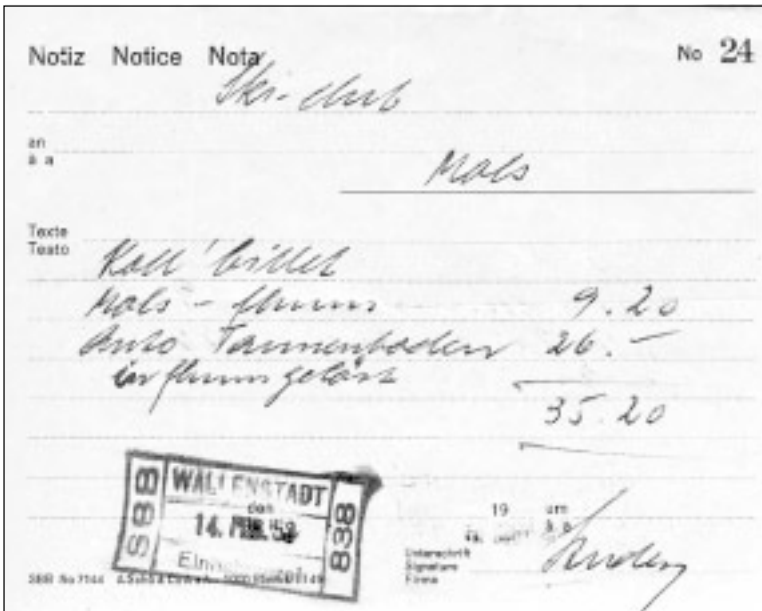 Notiz Notice Nota No 24
Ski-club
an
à a
Mols
Texte
Testo
Koll' billet
Mols - flums 9.20
Auto Tannenboden 26.-
in flums gelöst
35.20
SBB WALLENSTADT 838
den
14. FEB. 53
19 um
à a
Unterschrift
Signature
Firma
SBB No 7144